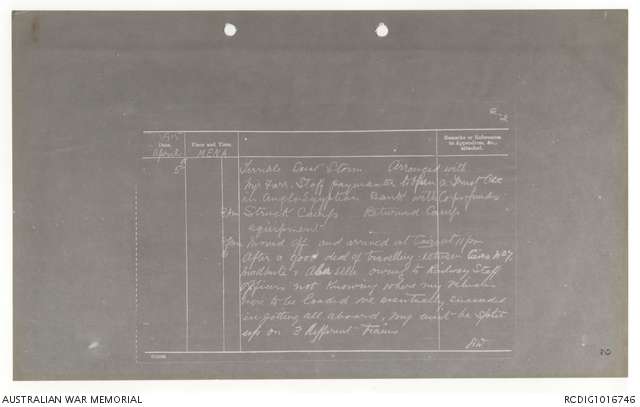 1915
Date. Place and Time. Remarks or References to Appendices, &c., attached.
April MENA
5th Terrible Dust Storm. Arranged with
Major Farr. Staff paymaster to open a Trust
in Anglo Egyptian Bank with Corps funds
Struck Camp Returned Camp
equipment
Moved off and arrived at Cairo at 11pm
After a good deal of travelling between Cairo
& Abu Ella owing to Railway Staff
Officers not knowing where my Vehicles
were to be loaded we eventually succeeded
in getting all aboard, my unit be split
up on 3 different Trains
AUSTRALIAN WAR MEMORIAL
RCDIG1016746